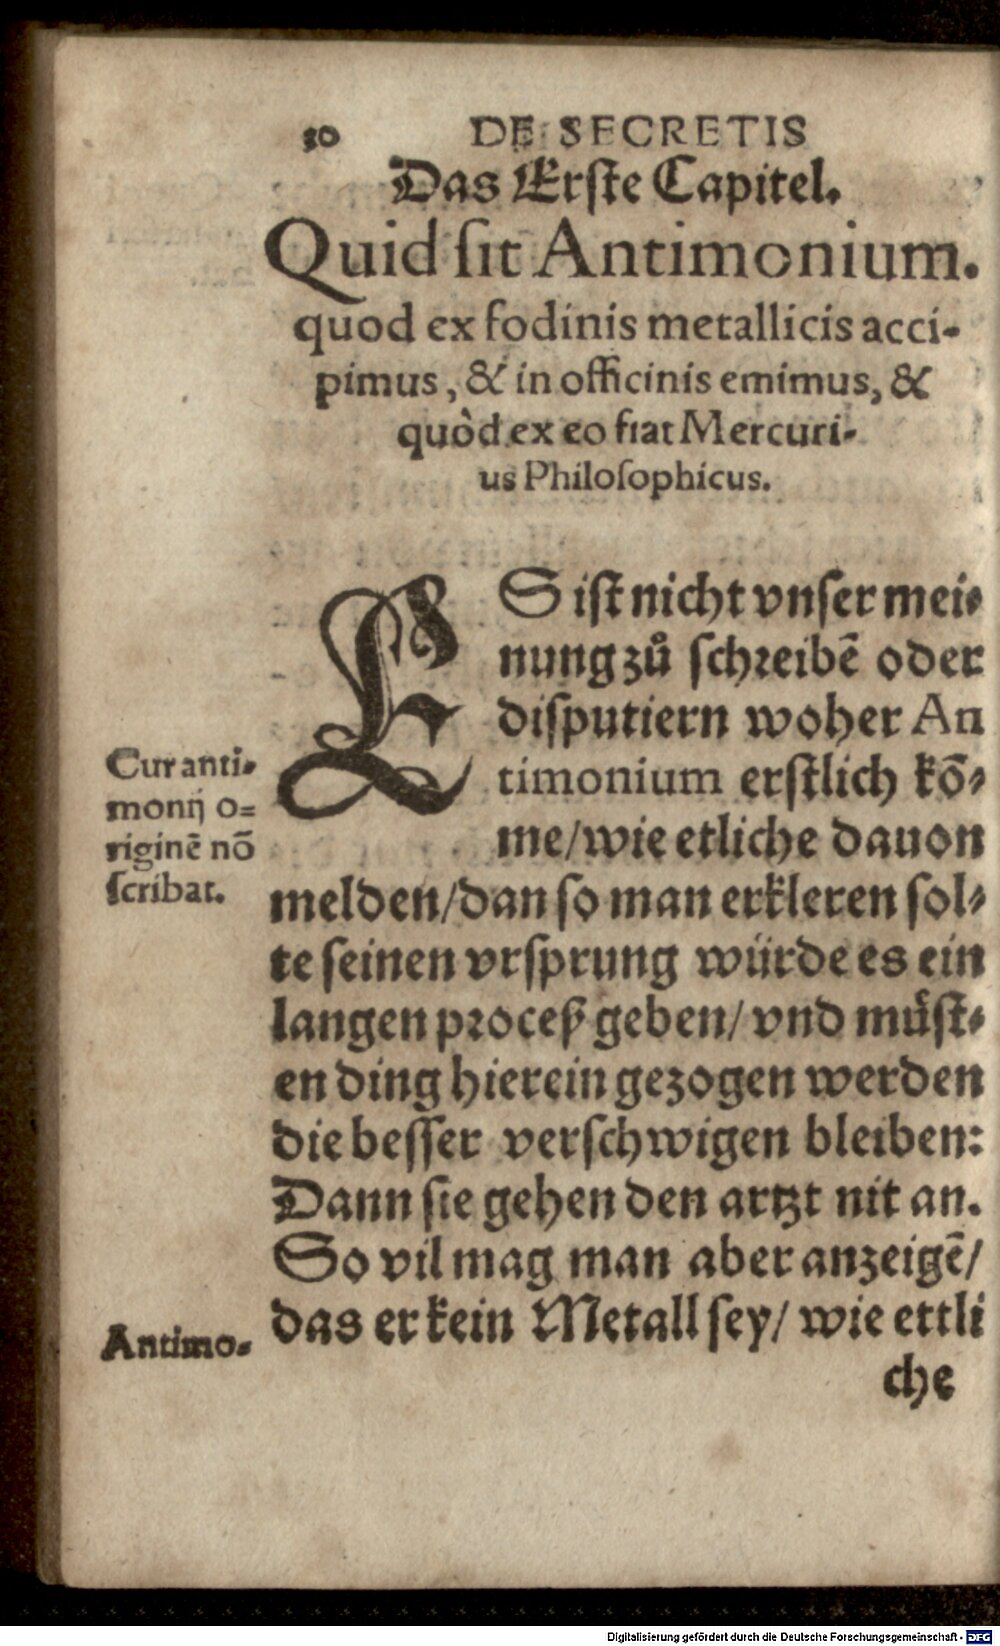 30 DE SECRETIS
Das Erste Capitel.
Quid ſit Antimonium.
quod ex fodinis metallicis acci-
pimus, & in officinis emimus, &
quòd ex eo fiat Mercuri-
us Philoſophicus.
ES iſt nicht vnſer mei-
nung zů ſchreibẽ oder
diſputiern woher An
timonium erſtlich kõ-
me/wie etliche dauon
melden/dan ſo man erkleren ſol-
te ſeinen vrſprung würde es ein
langen proceß geben/ vnd můſt-
en ding hierein gezogen werden
die beſſer verſchwigen bleiben:
Dann ſie gehen den artzt nit an.
So vil mag man aber anzeigẽ/
das er kein Metall ſey/ wie ettli
che
Cur anti-
monij o=
riginẽ nõ
ſcribat.
Antimo-
Digitalisierung gefördert durch die Deutsche Forschungsgemeinschaft - DFG